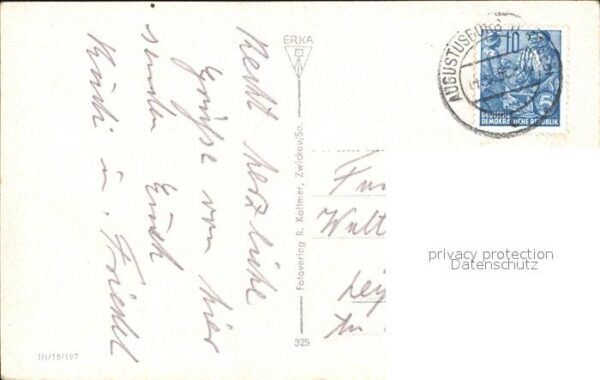 Recht herzliche
Grüße von hier
senden Euch
u. Friedel
ERKA
Fotoverlag R. Kallmer, Zwickau/Sa.
325
III/19/197
AUGUSTUSBURG
10
DEUTSCHE
DEMOKRATISCHE REPUBLIK
privacy protection
Datenschutz